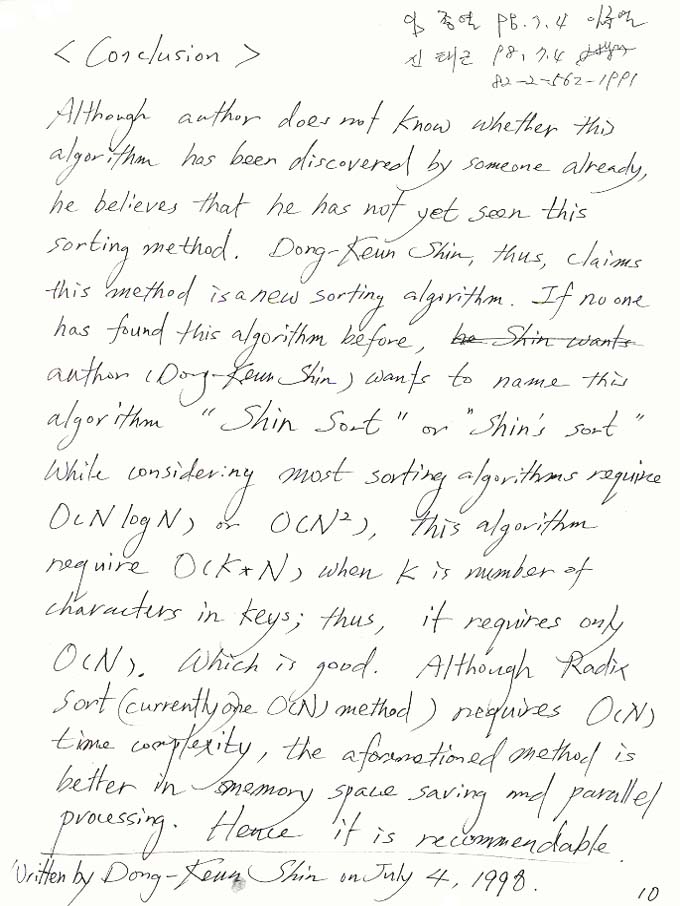 임종열 98.7.4
< Conclusion >
신태근 98.7.4
82-2-562-1991
Although author does not know whether this
algorithm has been discovered by someone already,
he believes that he has not yet seen this
sorting method. Dong-Keun Shin, thus, claims
this method is a new sorting algorithm. If no one
has found this algorithm before, he Shin wants
author (Dong-Keun Shin) wants to name this
algorithm "Shin Sort" or "Shin's sort"
While considering most sorting algorithms require
O(N log N) or O(N²), this algorithm
require O(K*N) when K is number of
characters in keys; thus, it requires only
O(N). Which is good. Although Radix
sort (currently one O(N) method) requires O(N)
time complexity, the aforementioned method is
better in memory space saving and parallel
processing. Hence it is recommendable.
Written by Dong-Keun Shin on July 4, 1998.
10